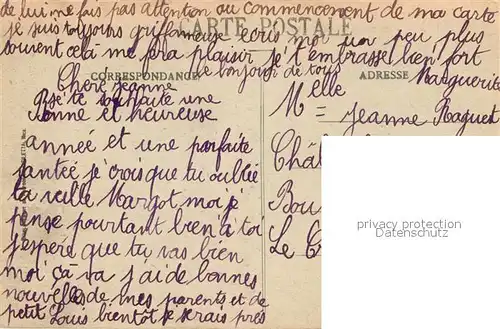 de lui ne fais pas attention au commencement de ma carte
CARTE POSTALE
je suis toujours griffonneuse ecris moi un peu plus
souvent celà me fra plaisir je t'embrasse bien fort
le bonjour de tous Marguerite
CORRESPONDANCE
ADRESSE
Chère Jeanne
je te souhaite une
Bonne et heureuse
année et une parfaite
santée je crois que tu oublie
ta vieille Margot moi je
pense pourtant bien à toi
j'espère que tu vas bien
moi çà va j'ai de bonnes
nouvelles de mes parents et de
petit Louis bientôt je serais près
Melle
Jeanne Raguet
Châ
Bou
Le C
privacy protection
Datenschutz